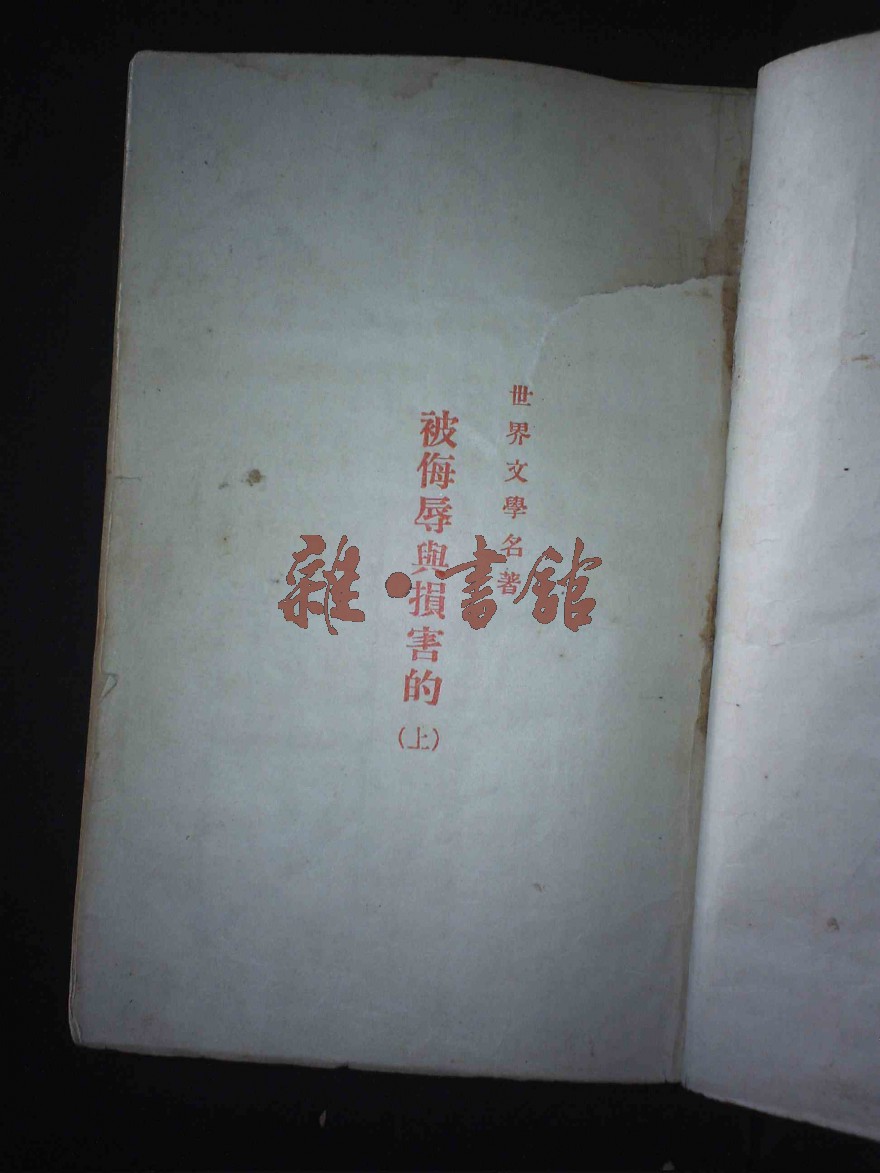 世界文學名著
被侮辱與損害的
（上）
雜·書館